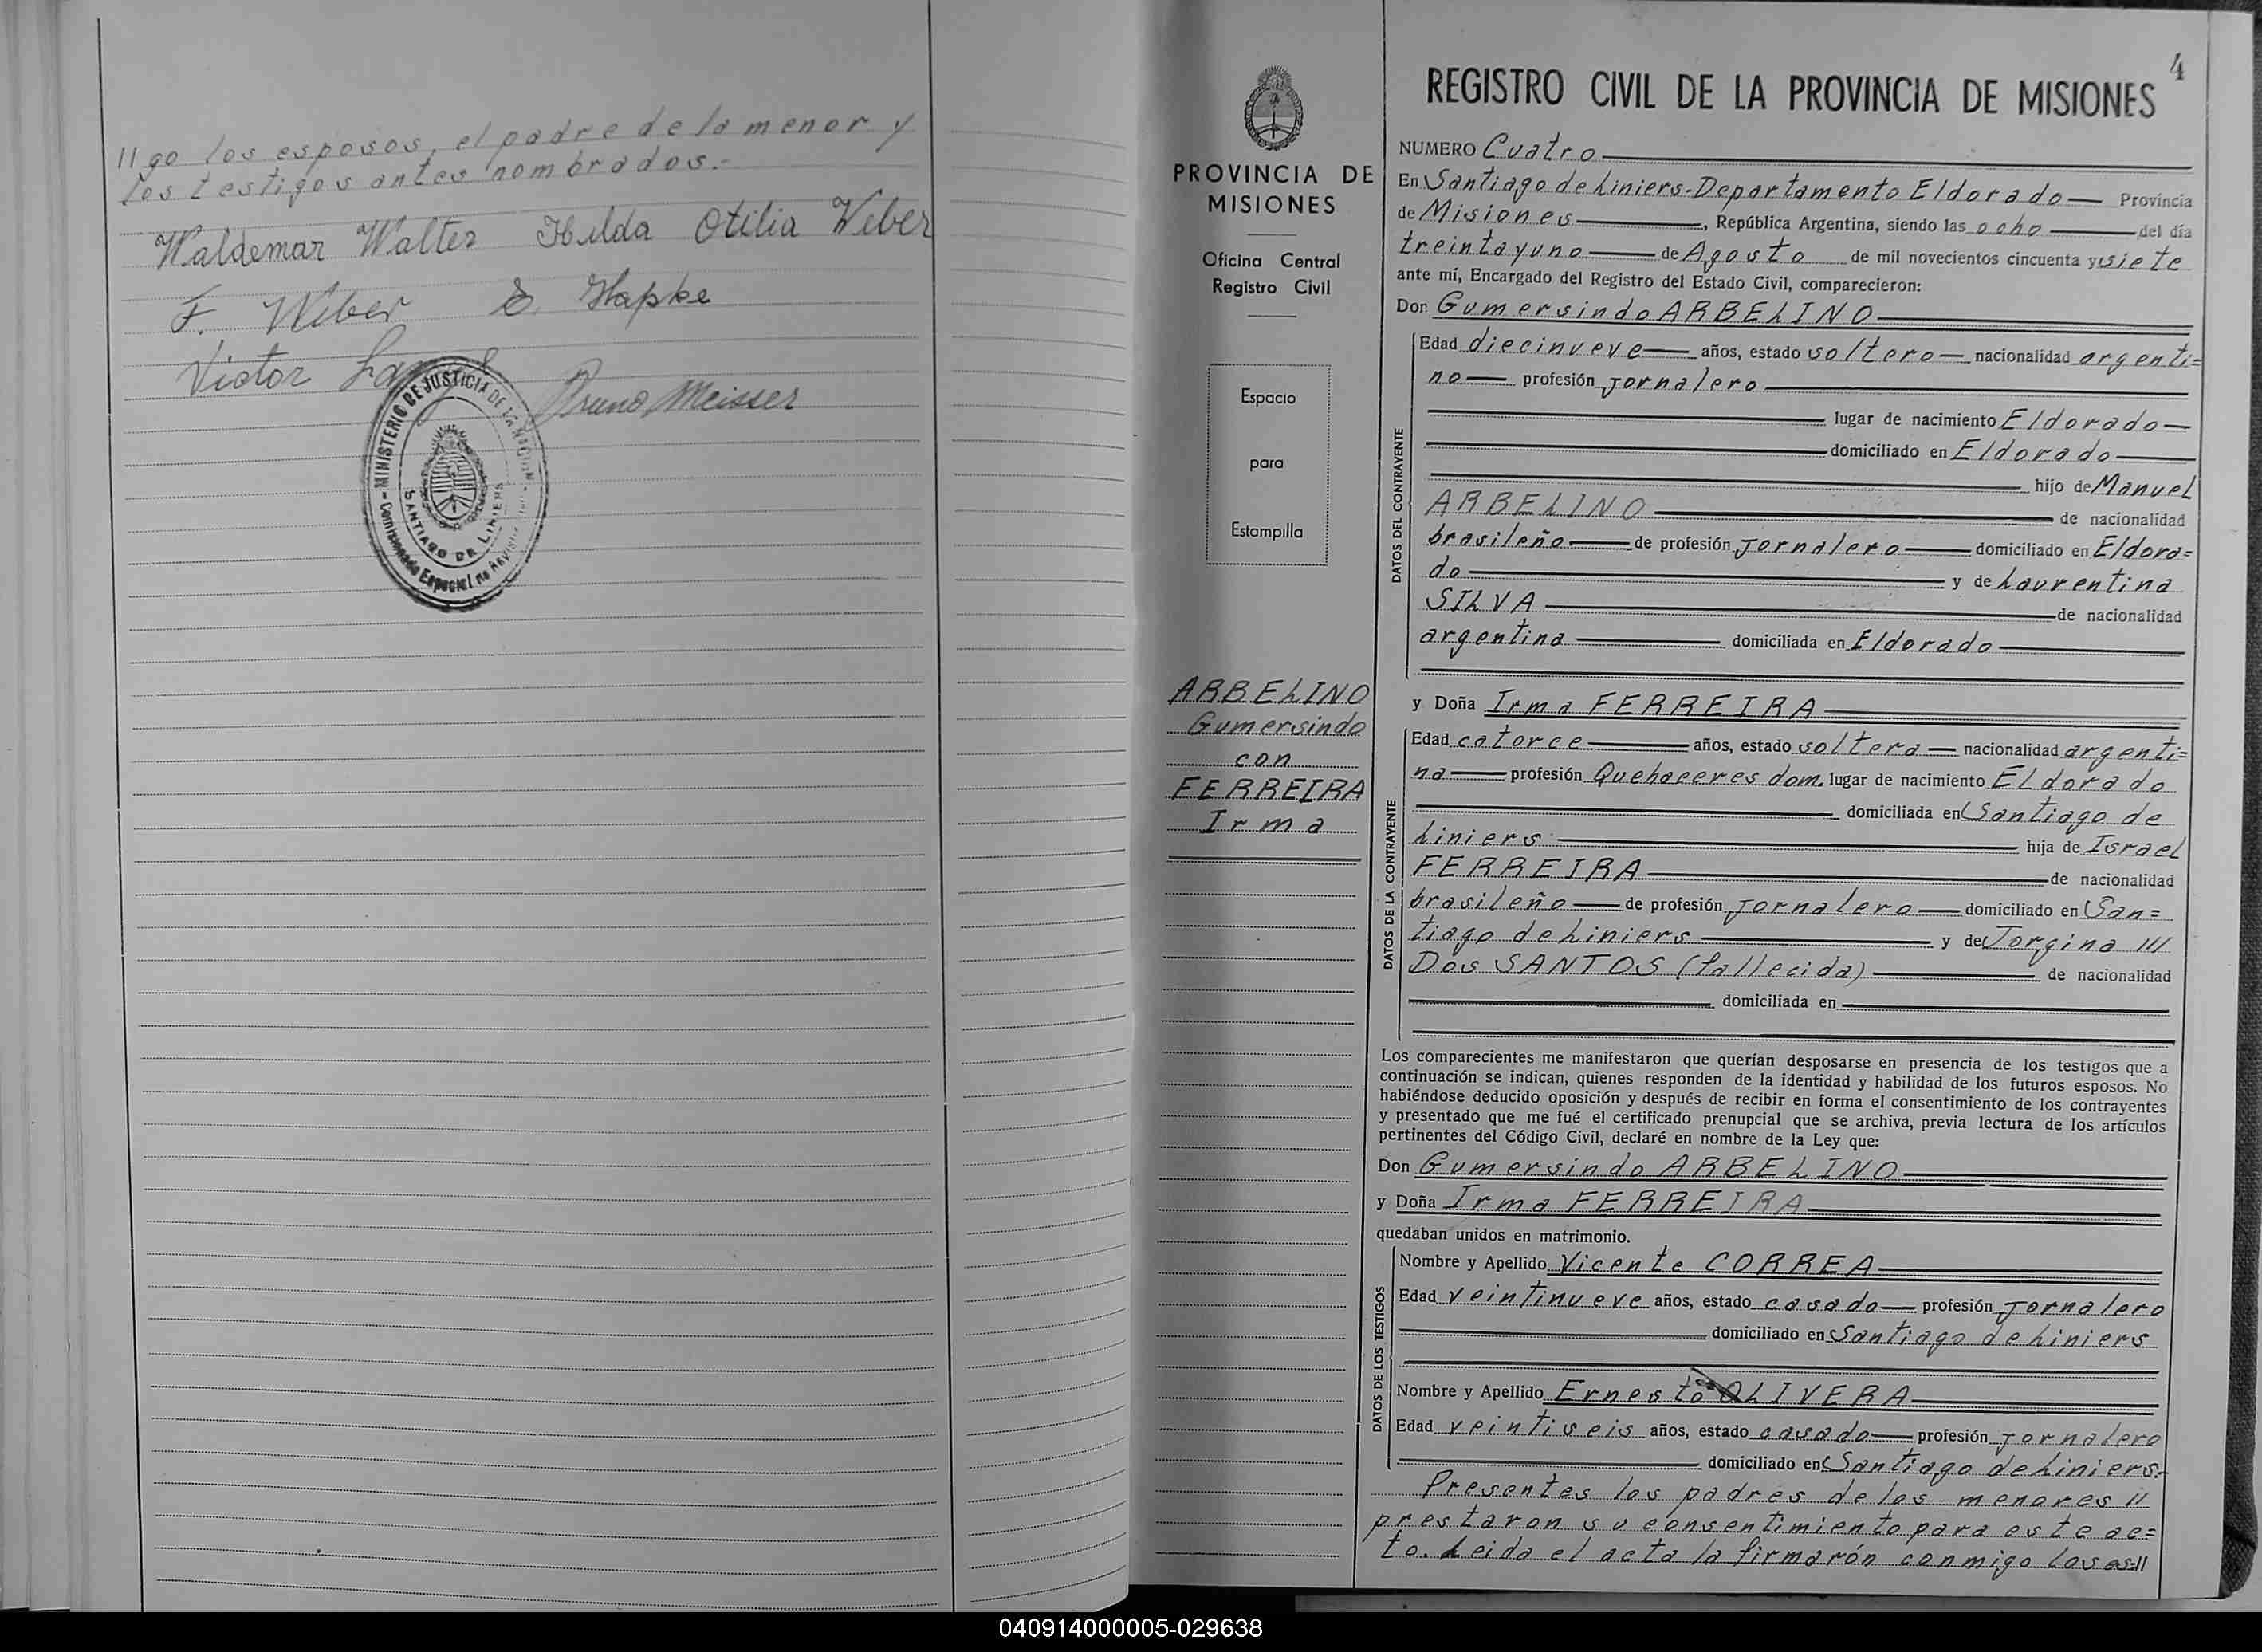 //go los esposos, el padre de la menor y
los testigos antes nombrados.-
Waldemar Walter Hilda Otilia Weber
F. Weber E. Hapke
Victor
Bruno Meisser
- MINISTERIO DE JUSTICIA DE LA NACION -
SANTIAGO DE LINIERS
PROVINCIA DE
MISIONES
Oficina Central
Registro Civil
Espacio
para
Estampilla
ARBELINO
Gumersindo
con
FERREIRA
Irma
4
REGISTRO CIVIL DE LA PROVINCIA DE MISIONES
NUMERO Cuatro
En Santiago de Liniers-Departamento Eldorado Provincia
de Misiones, República Argentina, siendo las ocho del día
treintayuno de Agosto de mil novecientos cincuenta y siete
ante mí, Encargado del Registro del Estado Civil, comparecieron:
Don Gumersindo ARBELINO
DATOS DEL CONTRAYENTE
Edad diecinueve años, estado soltero nacionalidad argenti=
no profesión jornalero
lugar de nacimiento Eldorado
domiciliado en Eldorado
hijo de Manuel
ARBELINO de nacionalidad
brasileño de profesión jornalero domiciliado en Eldora=
do y de Laurentina
SILVA de nacionalidad
argentina domiciliada en Eldorado
y Doña Irma FERREIRA
DATOS DE LA CONTRAYENTE
Edad catorce años, estado soltera nacionalidad argenti=
na profesión Quehaceres dom. lugar de nacimiento Eldorado
domiciliada en Santiago de
Liniers hija de Israel
FERREIRA de nacionalidad
brasileño de profesión jornalero domiciliado en San=
tiago de Liniers y de Jorgina ///
Dos SANTOS (fallecida) de nacionalidad
domiciliada en
Los comparecientes me manifestaron que querían desposarse en presencia de los testigos que a
continuación se indican, quienes responden de la identidad y habilidad de los futuros esposos. No
habiéndose deducido oposición y después de recibir en forma el consentimiento de los contrayentes
y presentado que me fué el certificado prenupcial que se archiva, previa lectura de los artículos
pertinentes del Código Civil, declaré en nombre de la Ley que:
Don Gumersindo ARBELINO
y Doña Irma FERREIRA
quedaban unidos en matrimonio.
DATOS DE LOS TESTIGOS
Nombre y Apellido Vicente CORREA
Edad veintinueve años, estado casado profesión jornalero
domiciliado en Santiago de Liniers
Nombre y Apellido Ernesto OLIVERA
Edad veintiseis años, estado casado profesión jornalero
domiciliado en Santiago de Liniers.-
Presentes los padres de los menores //
prestaron su consentimiento para este ac=
to. Leida el acta la firmarón conmigo los es//
040914000005-029638